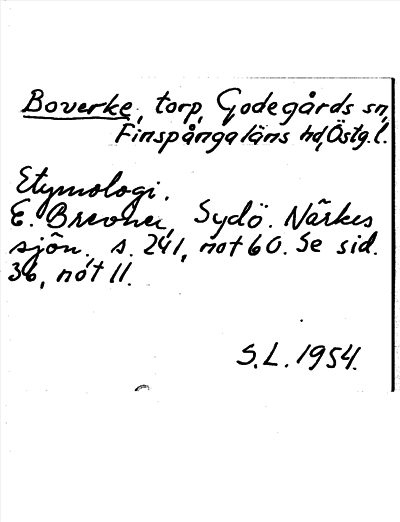 Boverke, torp, Godegårds sn,
Finspångaläns hd, Östg.l.
Etymologi.
E. Brevner, Sydö. Närkes
sjön., s. 241, not 60. Se sid.
36, not 11.
S.L. 1954.